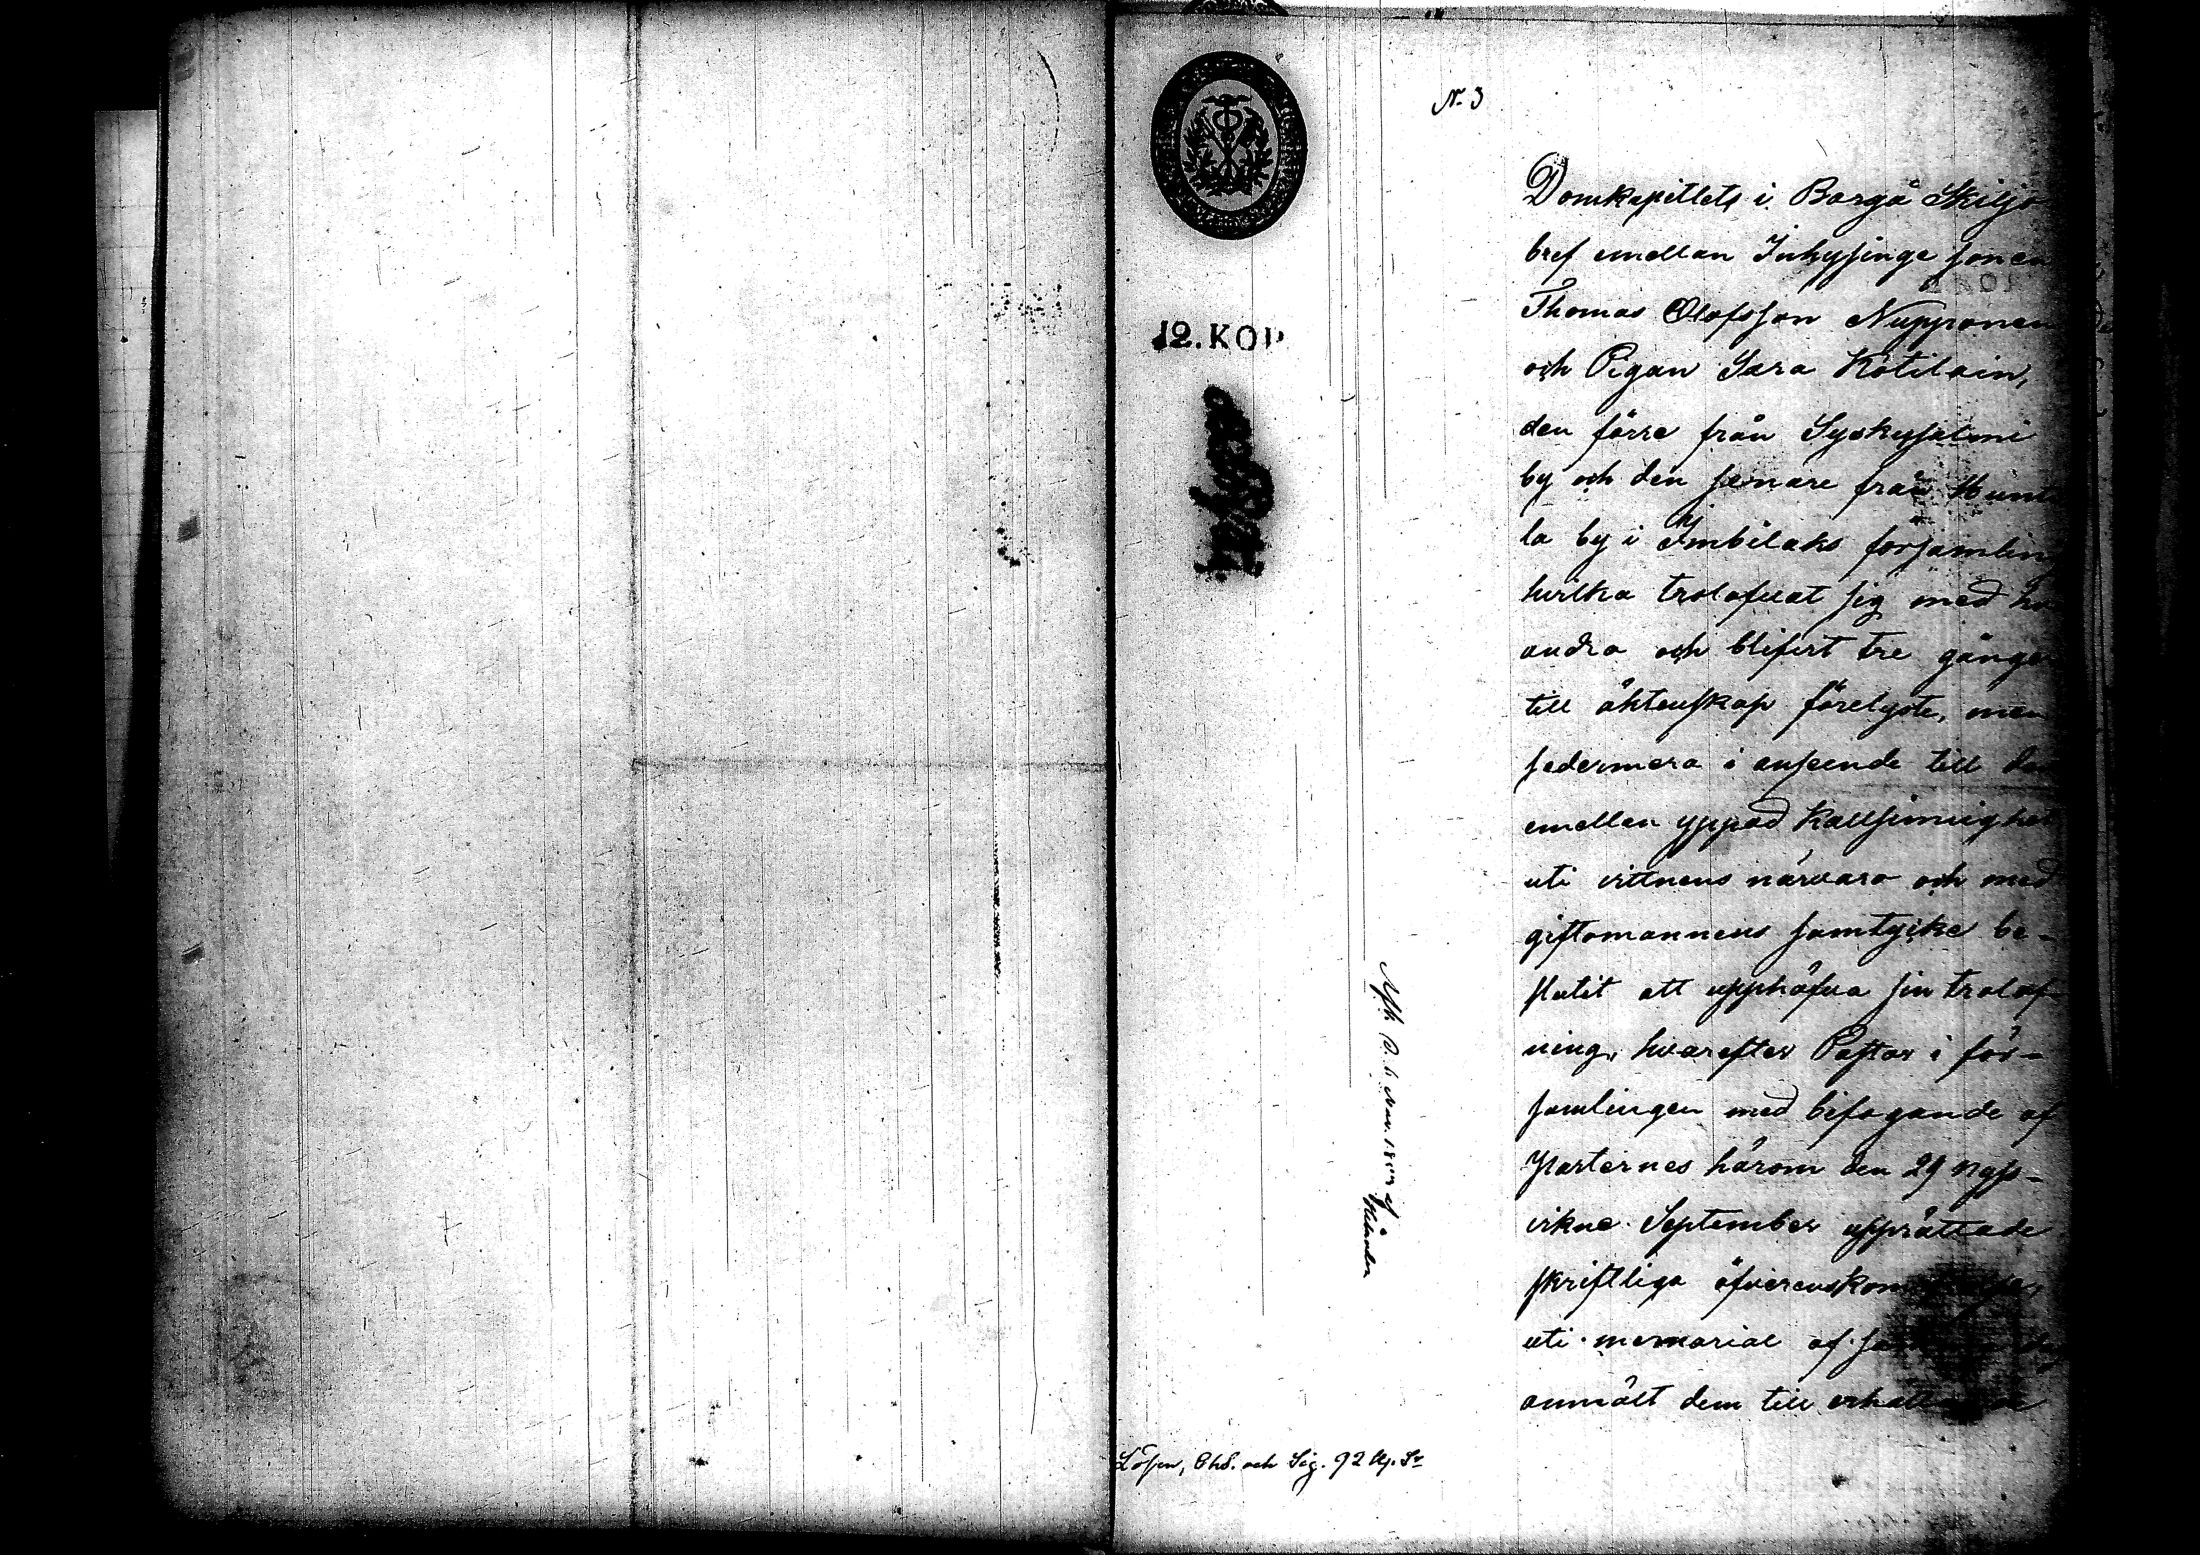 No 3
12. KOP
Domkapitlets i Borgå Skiljo
bref emellan Inhysinge sonen
Thomas Olofsson Nupponen
och Pigan Sara Kotilain,
den förre från Syskyjalmi
by och den senare från Hunt
la by i Imbilaks församling
hvilka trolofvat sig med hv
andra och blifvit tre gånger
till äktenskap förelyste, men
sedermera i anseende till den
emellan yppad kallsinnighet
uti vittnens närvaro och med
giftomannens samtycke be-
slutit att upphäfva sin trolof
ning, hvarefter Pastor i för-
samlingen med bifogande af
Parternes härom den 29 nyss-
vikne September upprättade
skriftliga öfverenskommelse,
uti memorial af
anmält dem till erhållande
Lösen, Chs. och Sig. 92 kp. Sr